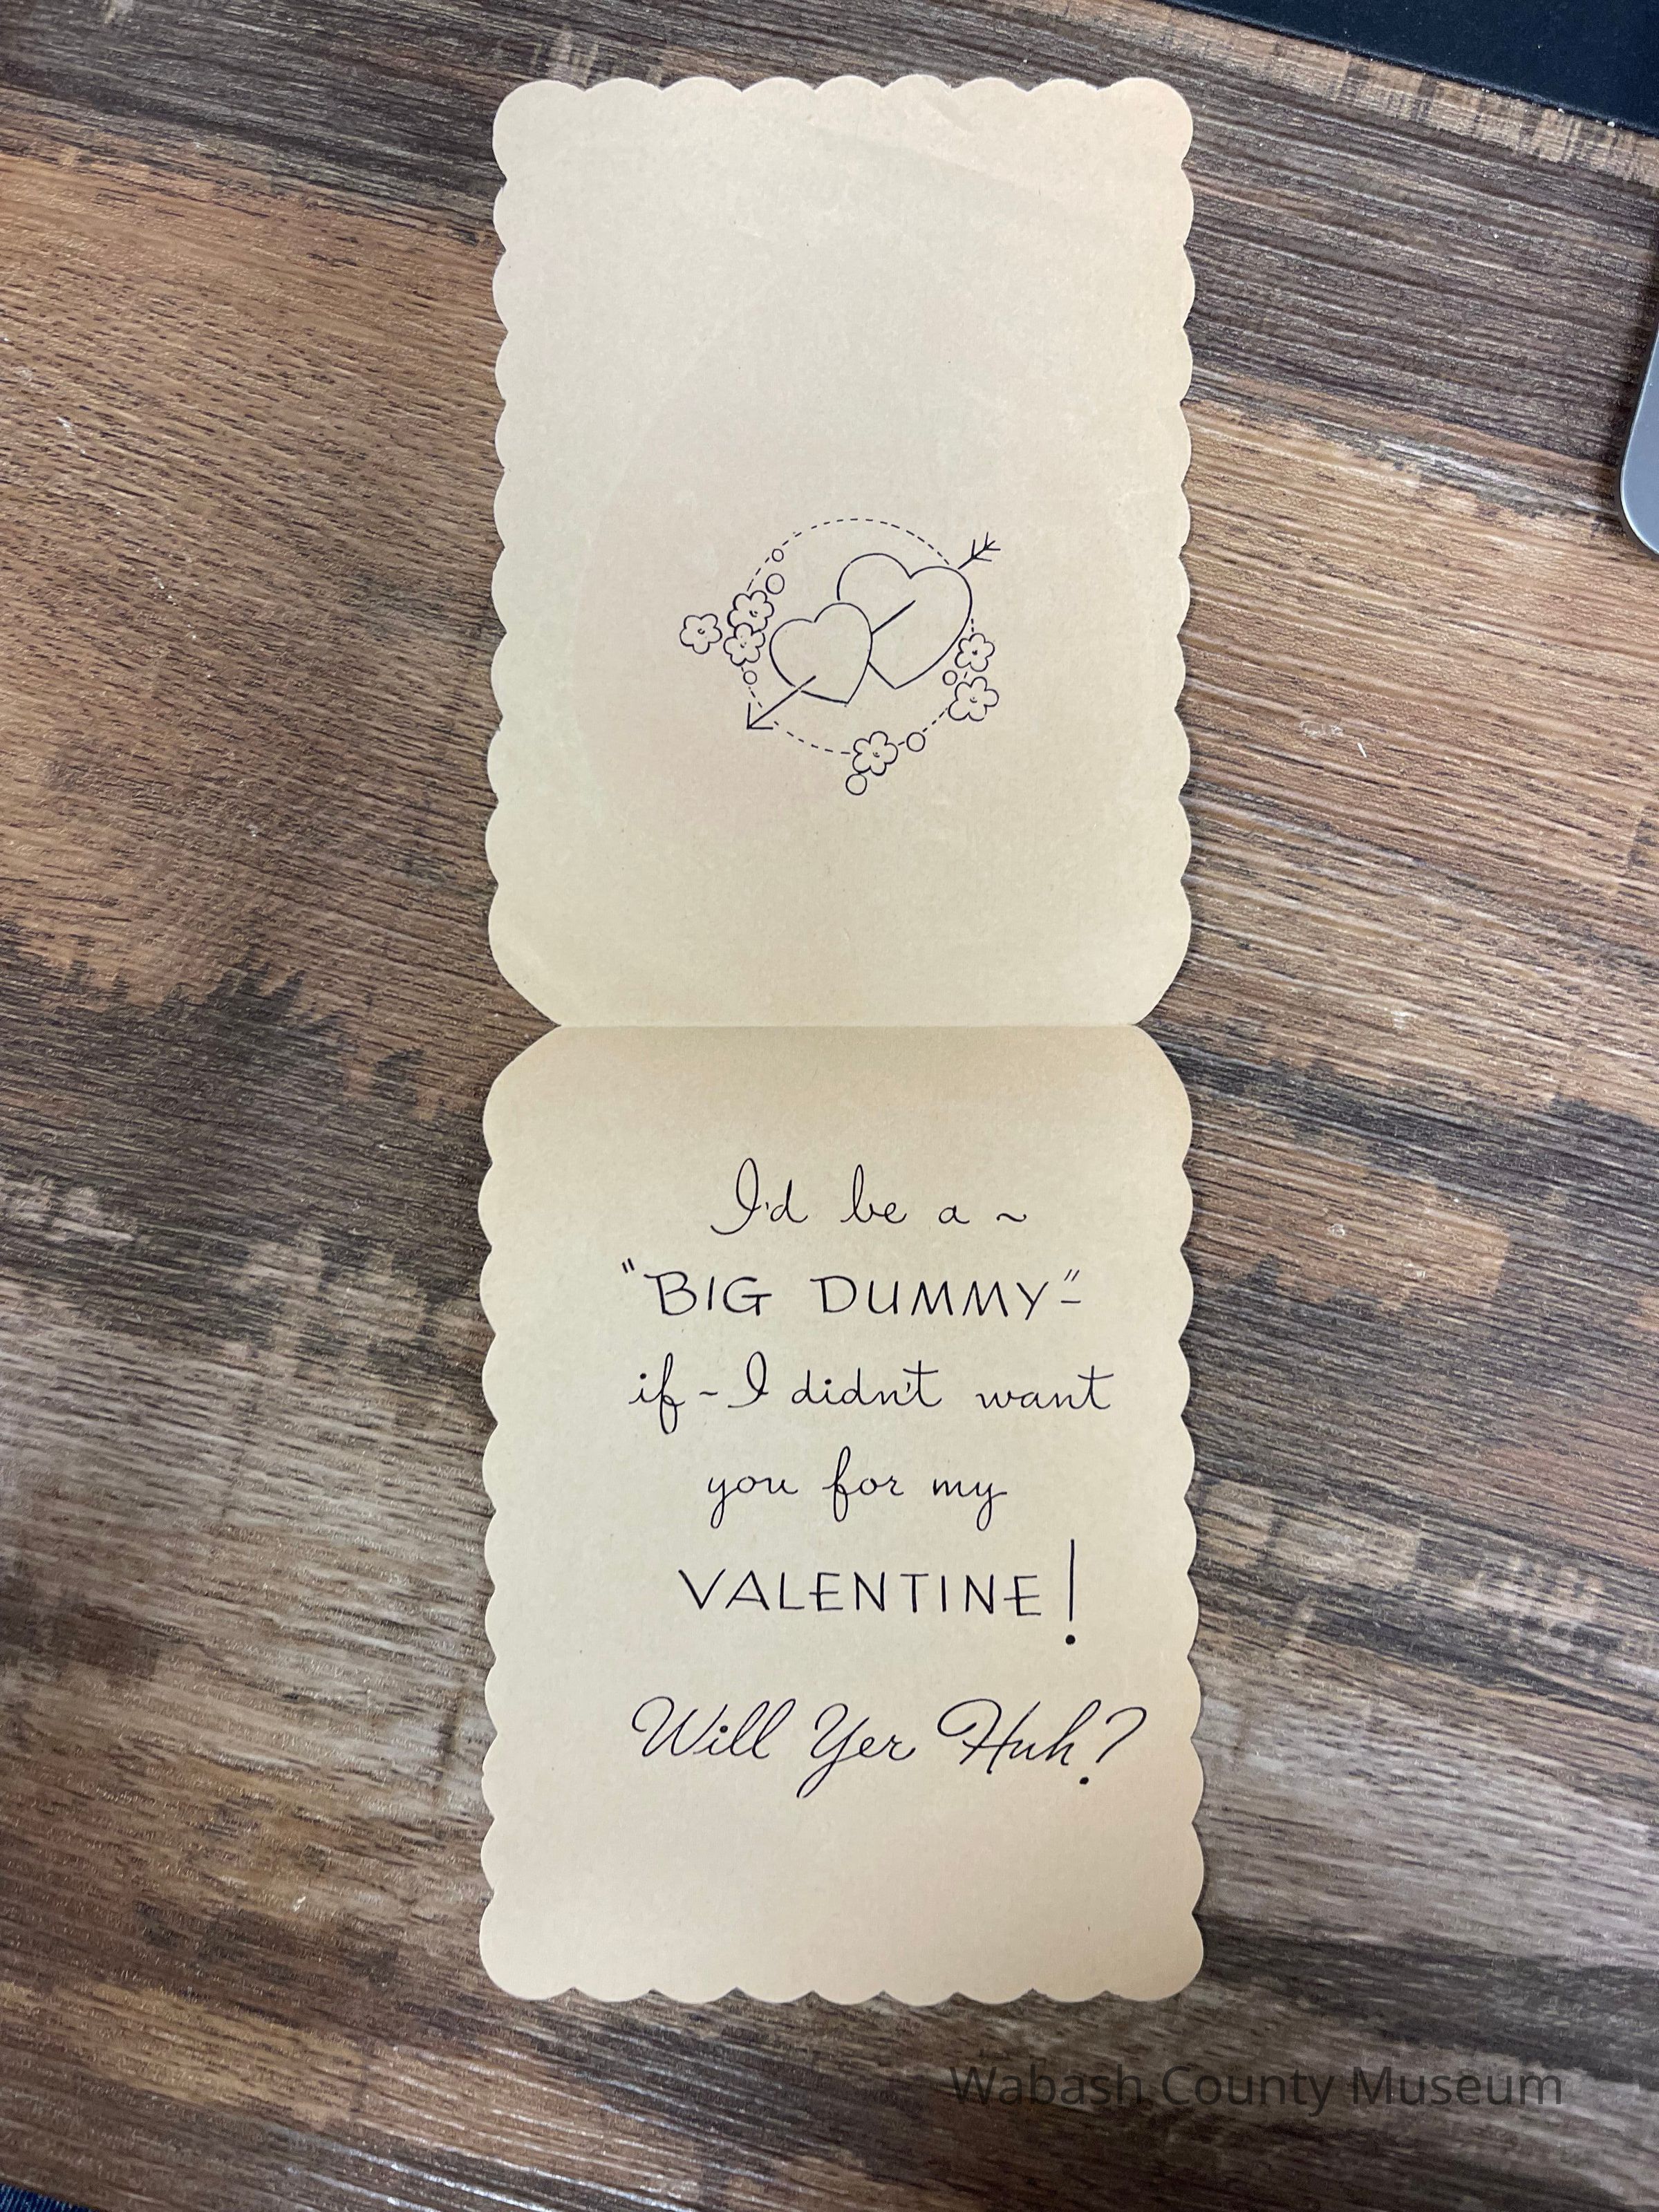 I'd be a ~
"BIG DUMMY"-
if - I didn't want
you for my
VALENTINE!
Will Yer Huh?
Wabash County Museum